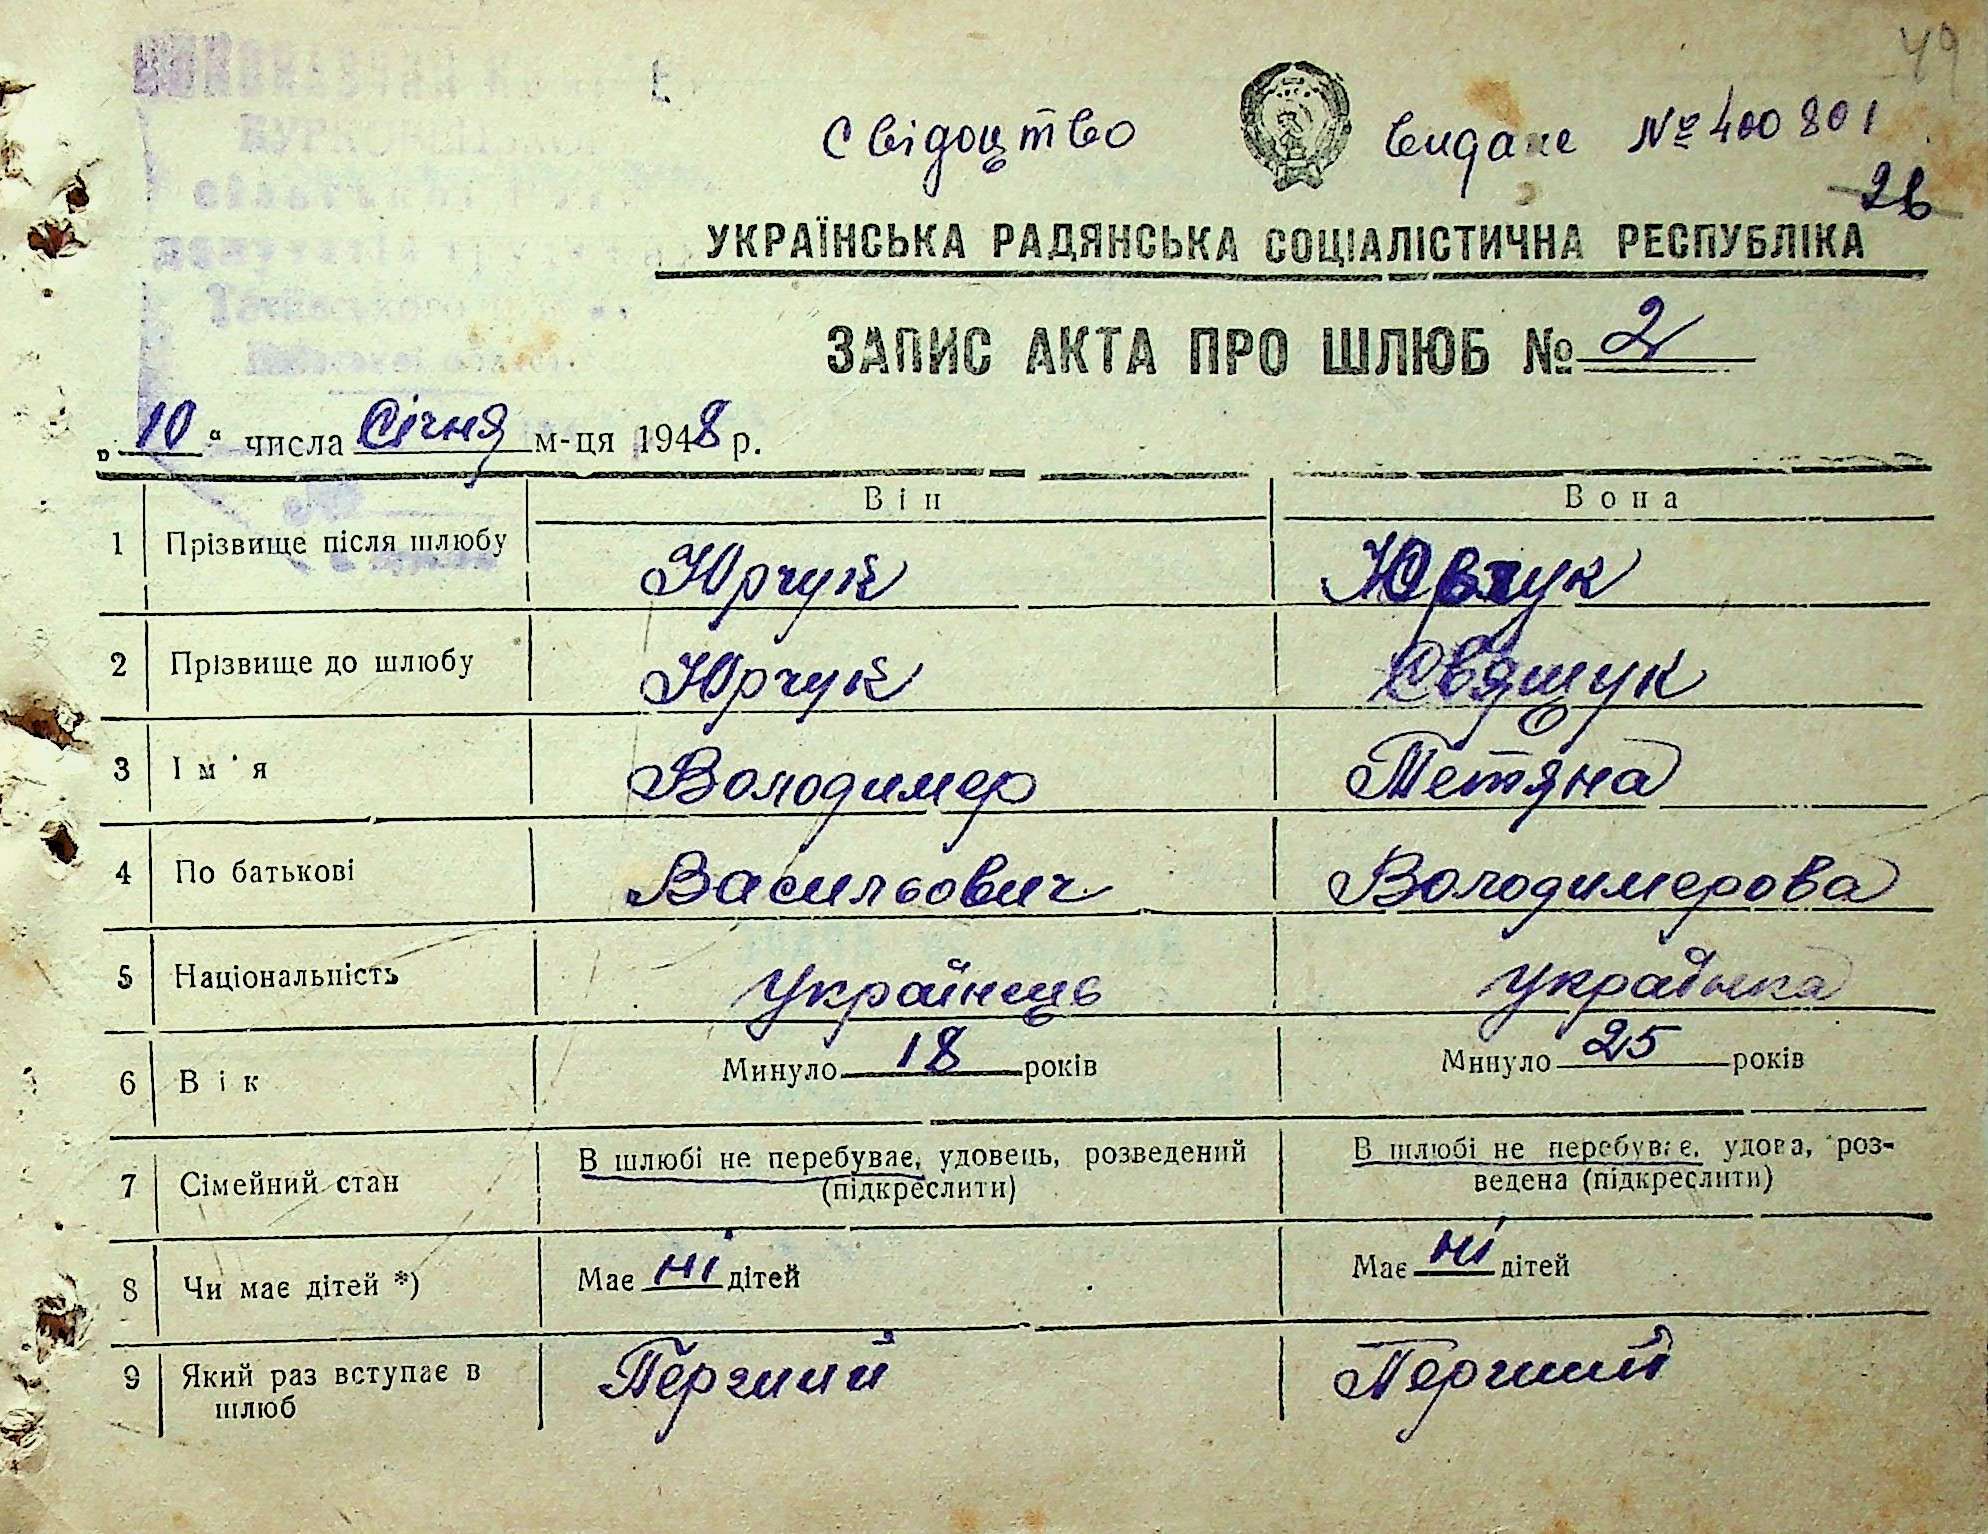 49
Свідоцтво видане № 400801
26
УКРАЇНСЬКА РАДЯНСЬКА СОЦІАЛІСТИЧНА РЕСПУБЛІКА
ЗАПИС АКТА ПРО ШЛЮБ № 2
„10“ числа Січня м-ця 1948 р.
Він Вона
1 Прізвище після шлюбу Юрчук Юрчук
2 Прізвище до шлюбу Юрчук Свящук
3 Ім'я Володимер Тетяна
4 По батькові Васильович Володимерова
5 Національність Українець Українка
6 Вік Минуло 18 років Минуло 25 років
7 Сімейний стан В шлюбі не перебуває, удовець, розведений В шлюбі не перебуває, удова, роз-
(підкреслити) ведена (підкреслити)
8 Чи має дітей *) Має ні дітей Має ні дітей
9 Який раз вступає в Перший Перший
шлюб